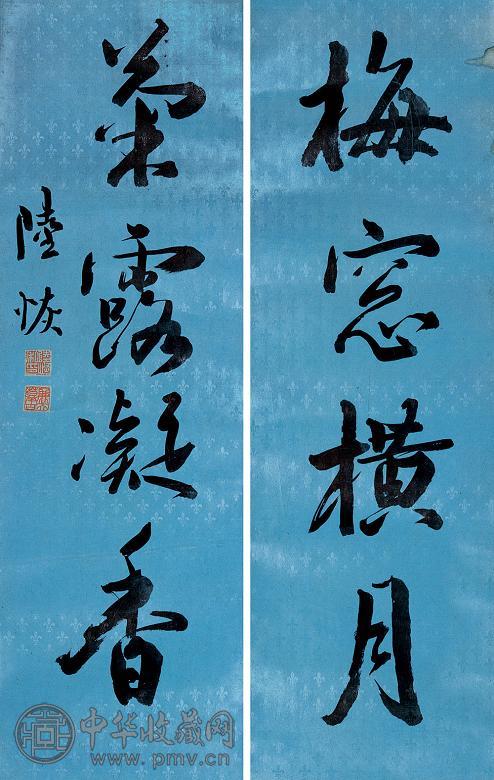 梅窓橫月
菊露凝香
陸恢
中华收藏网
www.pmv.cn